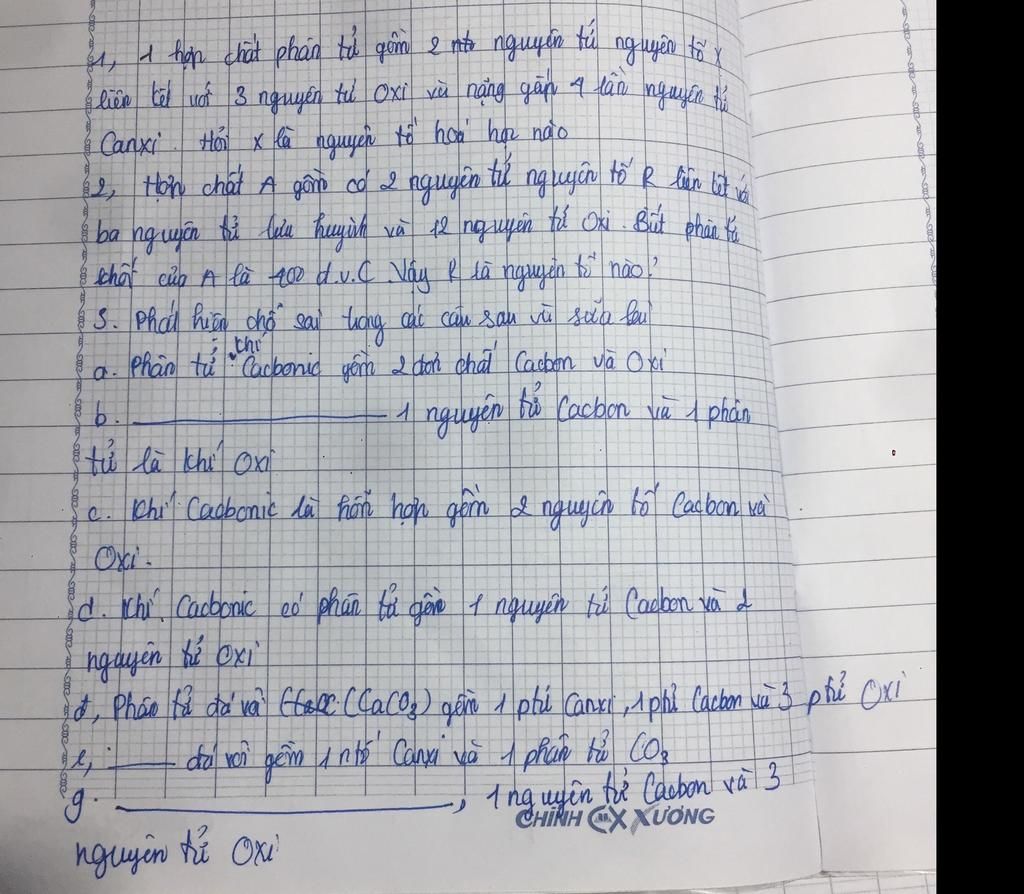 1, 1 hợp chất phân tử gồm 2 nguyên tử nguyên tố X
liên kết với 3 nguyên tử Oxi và nặng gấp 4 lần nguyên tử
Canxi. Hỏi X là nguyên tố hoá học nào
2, Hợp chất A gồm có 2 nguyên tử nguyên tố R liên kết với
ba nguyên tử lưu huỳnh và 12 nguyên tử Oxi. Biết phân tử
khối của A là 400 đ.v.C. Vậy R là nguyên tố nào?
3. Phát hiện chỗ sai trong các câu sau và sửa lại
a. Phân tử khí Cacbonic gồm 2 đơn chất Cacbon và Oxi
b. ____________ 1 nguyên tử Cacbon và 1 phân
tử là khí Oxi
c. Khí Cacbonic là hỗn hợp gồm 2 nguyên tố Cacbon và
Oxi.
d. Khí Cacbonic có phân tử gồm 1 nguyên tử Cacbon và 2
nguyên tử Oxi
đ, Phân tử đá vôi (CaCO3) gồm 1 ptử Canxi, 1 ptử Cacbon và 3 ptử Oxi
e, ____ đá vôi gồm 1 ntố Canxi và 1 phân tử CO3
g. ____________, 1 nguyên tử Cacbon và 3
CHÍNH XƯƠNG
nguyên tử Oxi